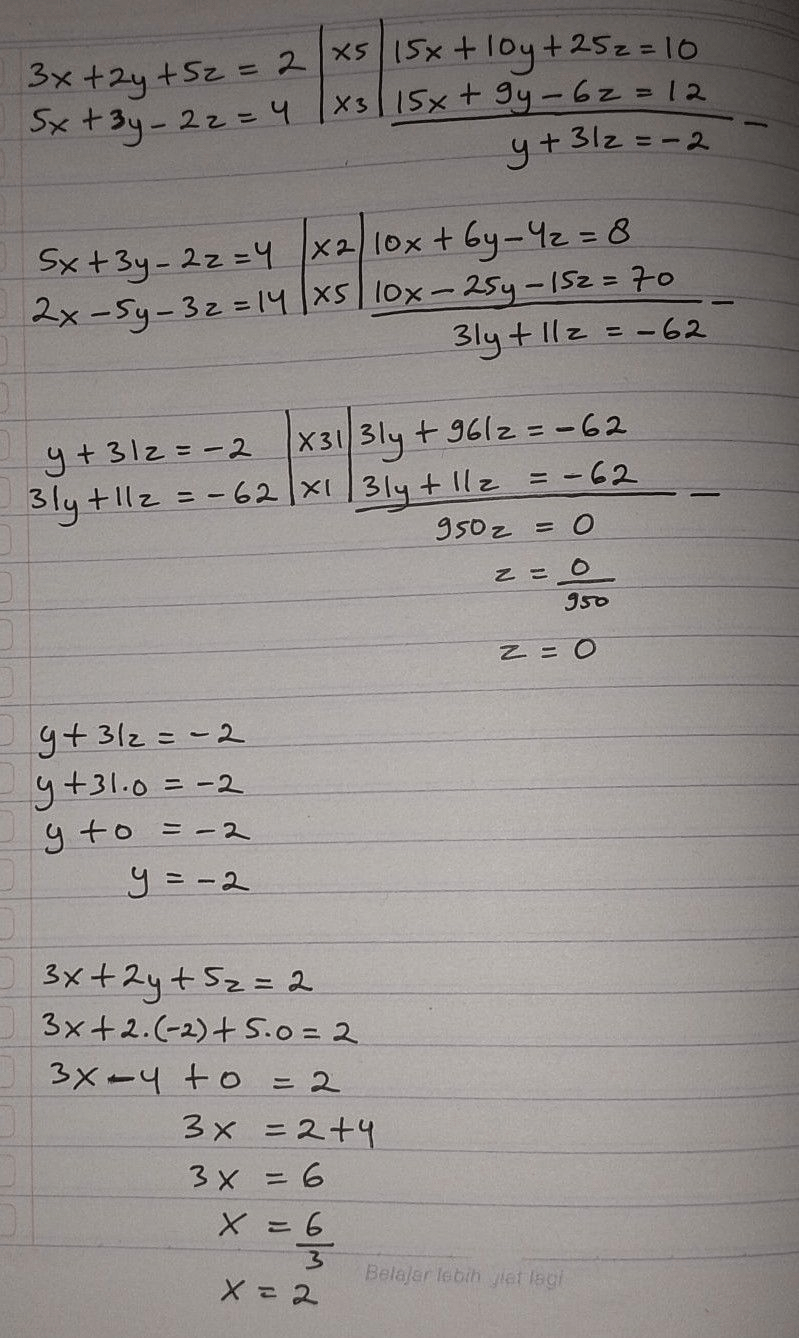 3x + 2y + 5z = 2 | x5 | 15x + 10y + 25z = 10
5x + 3y - 2z = 4 | x3 | 15x + 9y - 6z = 12 -
y + 31z = -2
5x + 3y - 2z = 4 | x2 | 10x + 6y - 4z = 8
2x - 5y - 3z = 14 | x5 | 10x - 25y - 15z = 70 -
31y + 11z = -62
y + 31z = -2 | x31 | 31y + 961z = -62
31y + 11z = -62 | x1 | 31y + 11z = -62 -
950z = 0
z = 0/950
z = 0
y + 31z = -2
y + 31.0 = -2
y + 0 = -2
y = -2
3x + 2y + 5z = 2
3x + 2.(-2) + 5.0 = 2
3x - 4 + 0 = 2
3x = 2 + 4
3x = 6
x = 6/3
x = 2
Belajar lebih giat lagi